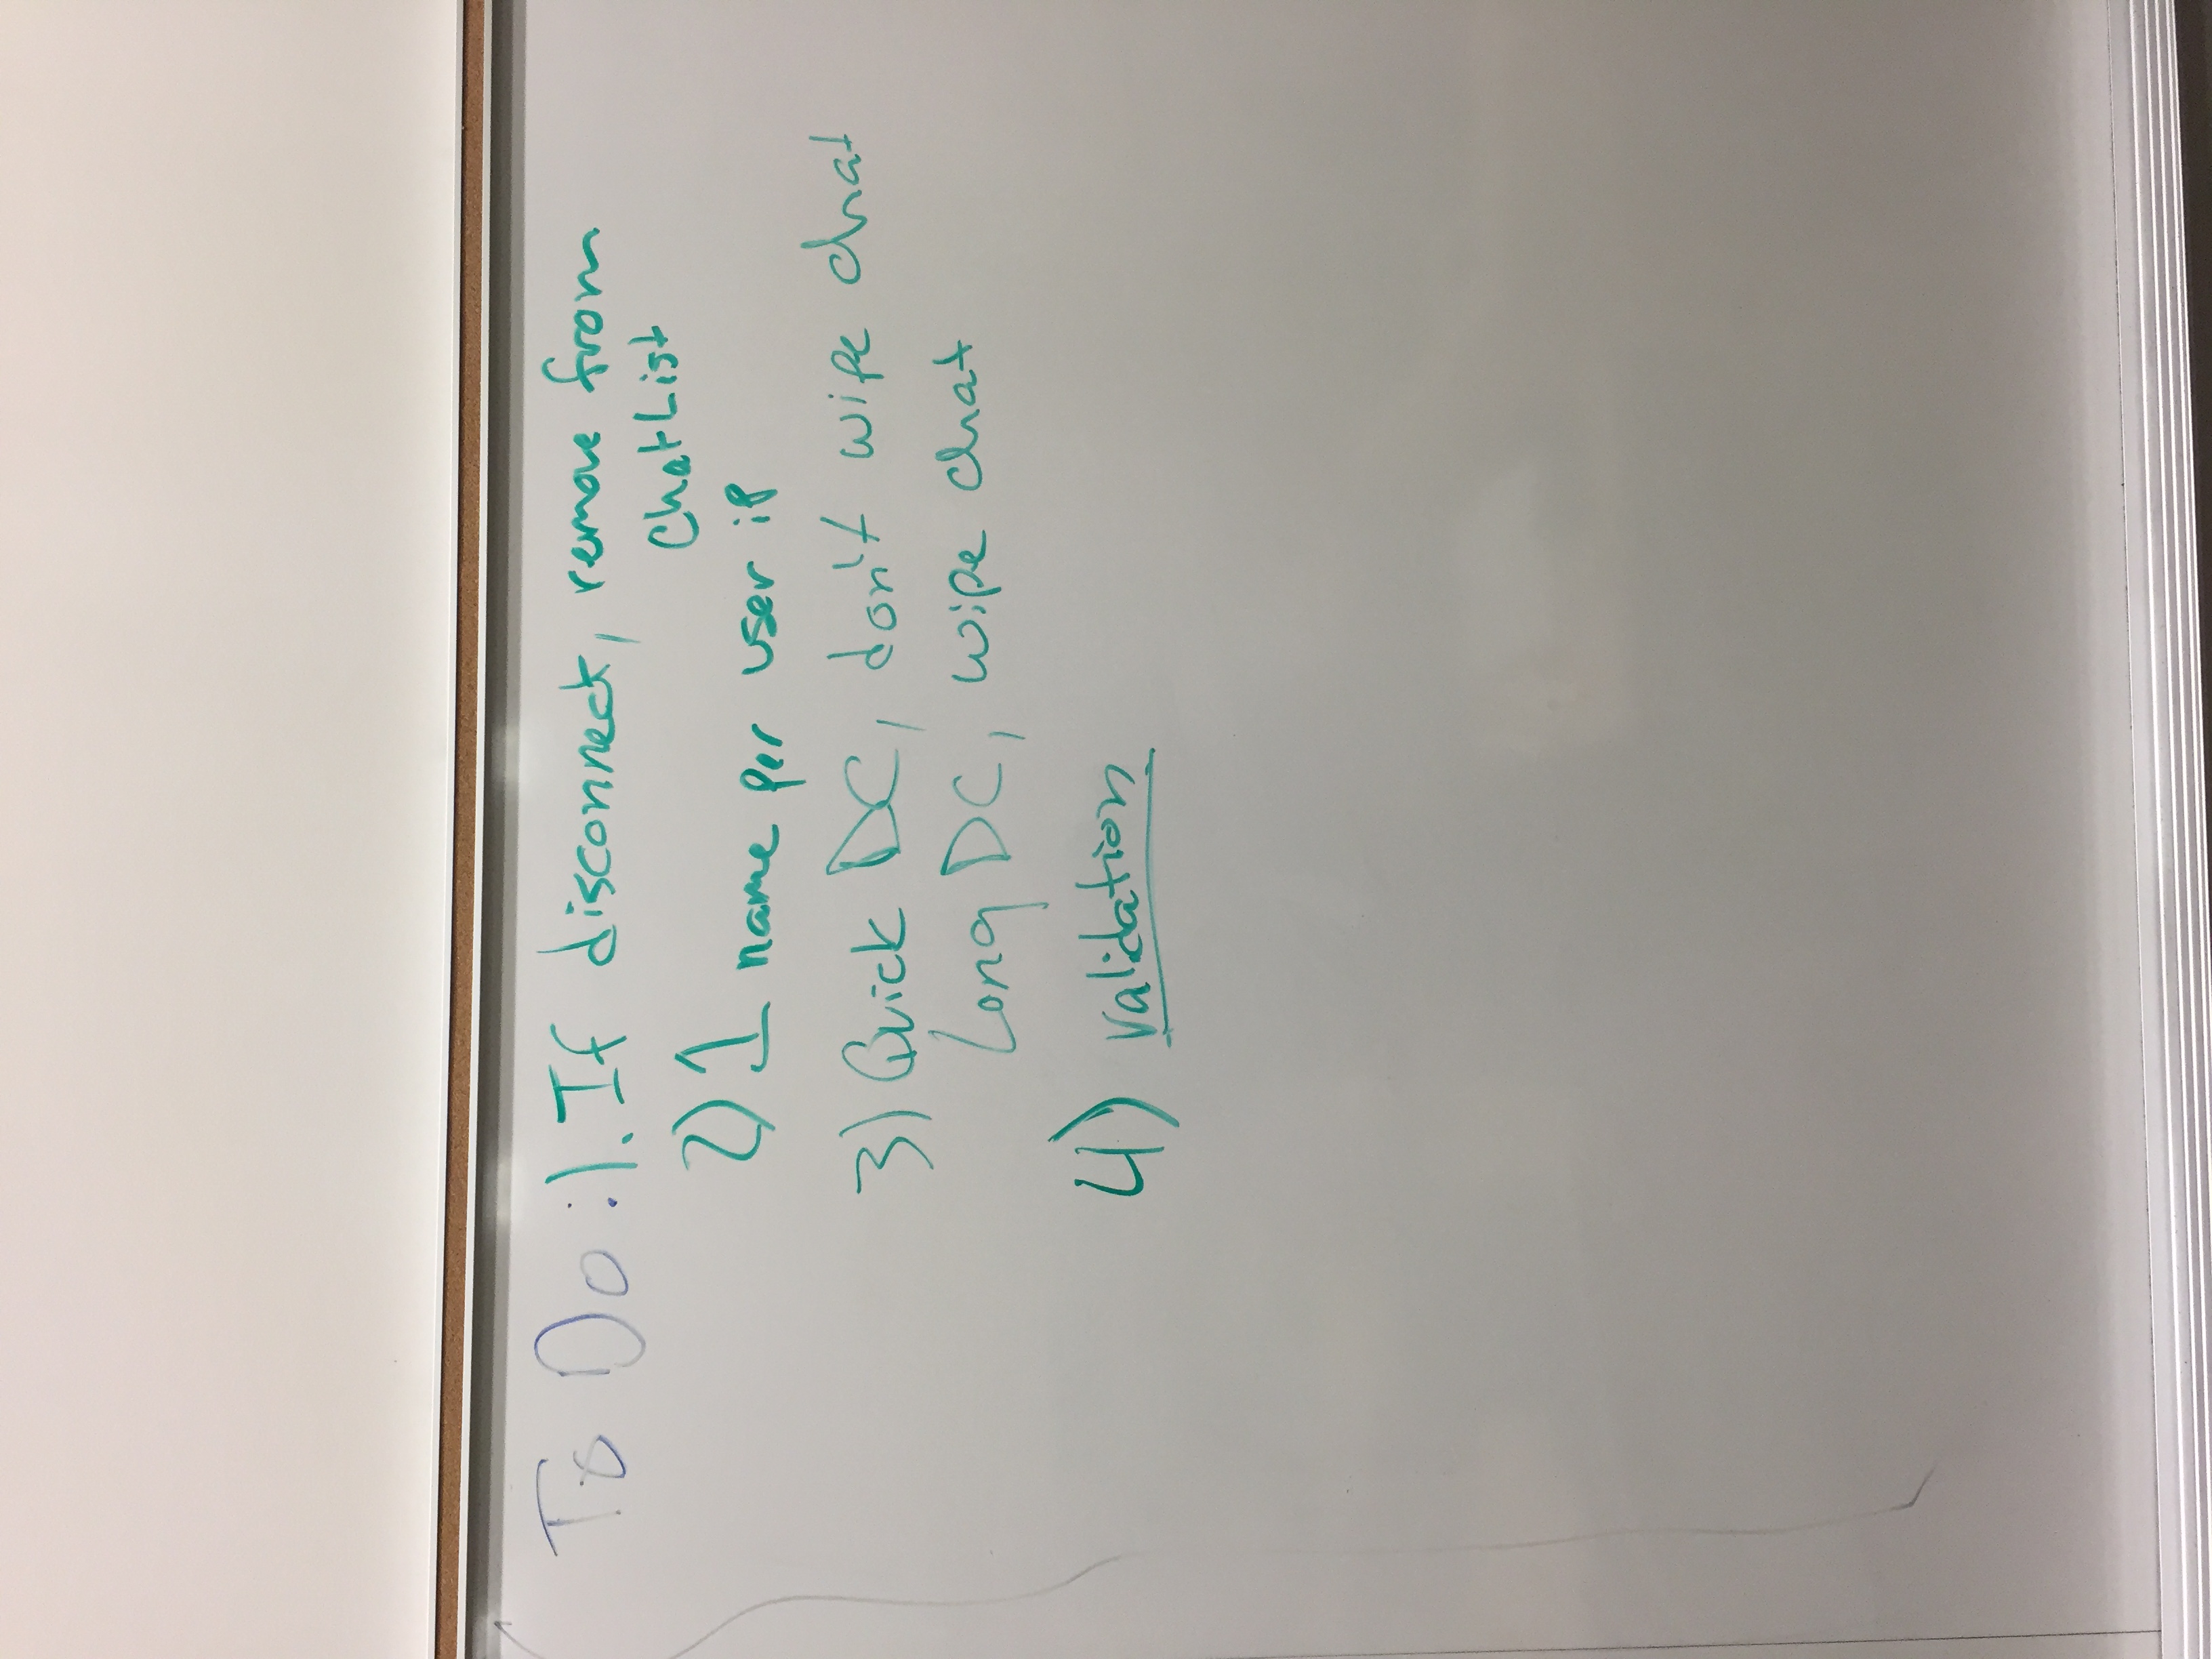 To Do : 1. If disconnect, remove from
ChatList
2) 1 name per user ip
3) Quick DC, don't wipe chat
Long DC, wipe chat
4) validation